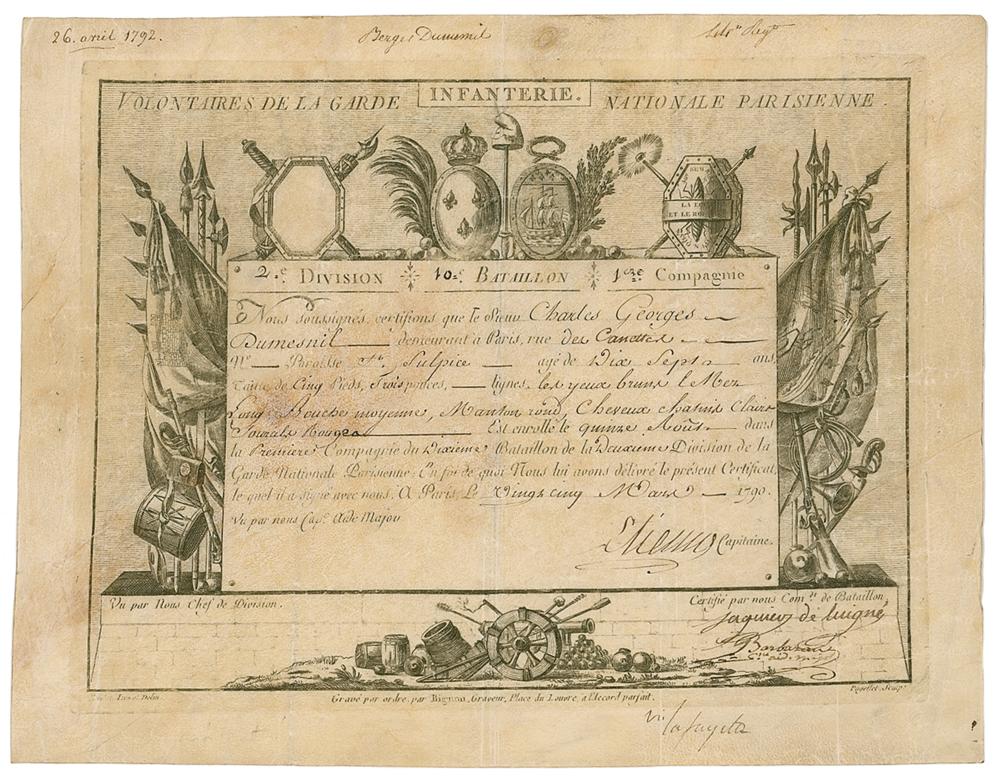 26. avril 1792.
Berges Dumesnil
VOLONTAIRES DE LA GARDE INFANTERIE. NATIONALE PARISIENNE.
LA LOI
ET LE ROI
2.e DIVISION 10.e BATAILLON 1ere Compagnie
Nous soussignés, certifions que le Sieur Charles Georges
Dumesnil demeurant à Paris, rue des Canettes
N.o Paroisse St. Sulpice agé de Dix Sept ans,
Taille de Cinq Pieds, Trois pouces, lignes, les yeux bruns le Nez
Long Bouche moyenne, Manton rond, Cheveux chatins Clairs
Sourcils Rouges Est enrollé le quinze Aoust dans
la Premiere Compagnie du Dixieme Bataillon de la Deuxieme Division de la
Garde Nationale Parisienne; En foi de quoi Nous lui avons délivré le présent Certificat,
le quel il a signé avec nous. A Paris, Le Vingt cinq Mars 1790.
Vu par nous Cap.e Aide Major
Capitaine.
Vu par Nous Chef de Division.
Certifié par nous Com.nt de Bataillon
Jaquier de
Delin
Gravé par ordre, par Bignon, Graveur, Place du Louvre, à l'Accord parfait.
Sculp.
vu lafayette